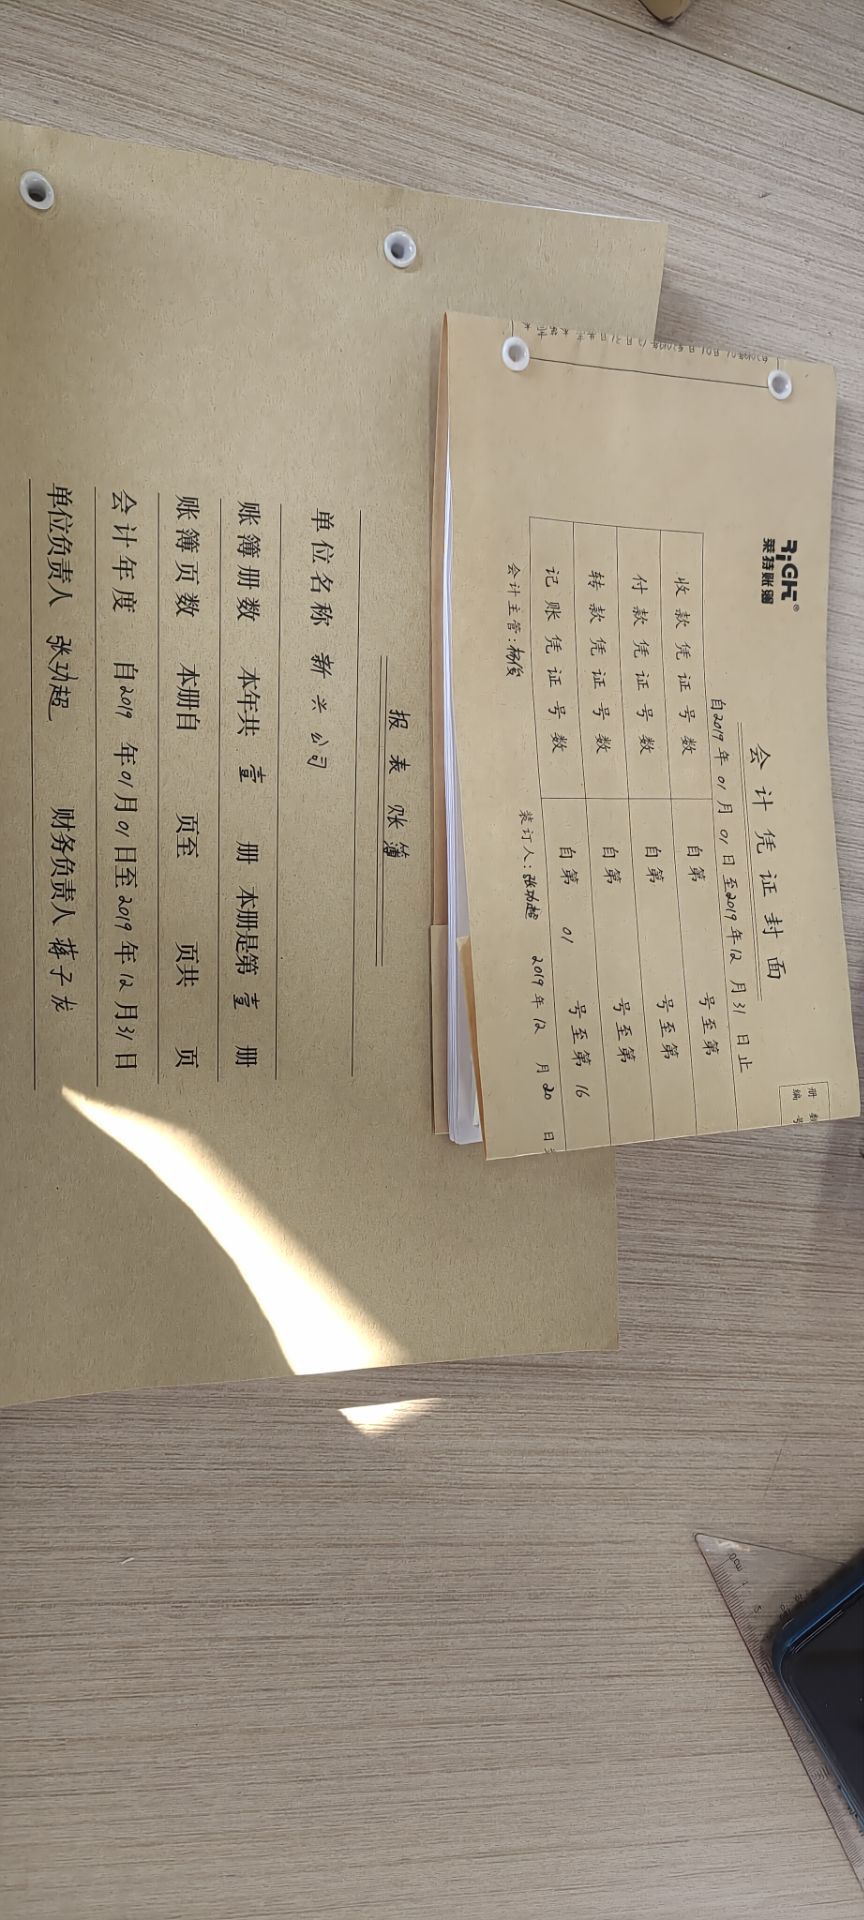 RiCH®
莱特账簿
会计凭证封面
册数
编号
自2019年01月01日至2019年12月31日止
收款凭证号数 自第 号至第
付款凭证号数 自第 号至第
转款凭证号数 自第 号至第
记账凭证号数 自第 01 号至第 16
会计主管:杨俊 装订人:张功超 2019年12月20日
报表账簿
单位名称 新兴公司
账簿册数 本年共 壹 册 本册是第 壹 册
账簿页数 本册自 页至 页共 页
会计年度 自2019年01月01日至2019年12月31日
单位负责人 张功超 财务负责人 蒋子龙
0cm 1